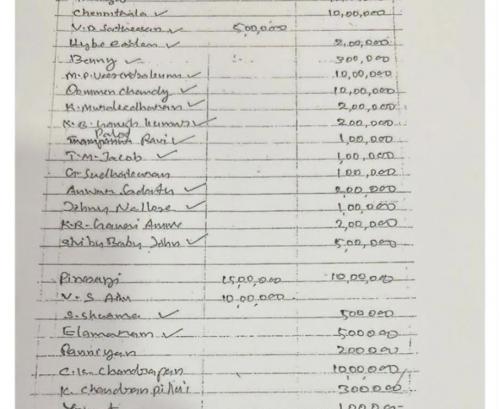 Chennithala ✓ 10,00,000
V.D. Satheesan ✓ 500,000
Hybe eadem ✓ 2,00,000
Benny ✓ 300,000
M.P. Veerendrakumar ✓ 10,00,000
Oommen Chandy ✓ 10,00,000
K. Muraleedharan ✓ 2,00,000
K.B. Ganesh Kumar ✓ 200,000
Palod Ravi ✓ 1,00,000
T.M. Jacob ✓ 1,00,000
Cr Sudhakaran 1,00,000
Anwar Sadath ✓ 200,000
Johny Nellore ✓ 1,00,000
K.R. Gowri Amma 2,00,000
Shibu Baby John ✓ 5,00,000
Pinarayi 10,00,000
V.S 10,00,000
S. Sharma ✓ 500000
Elamaram ✓ 500000
Panniyan 200000
C.K. Chandrapan 10,00,000
K. Chandran pillai 300000